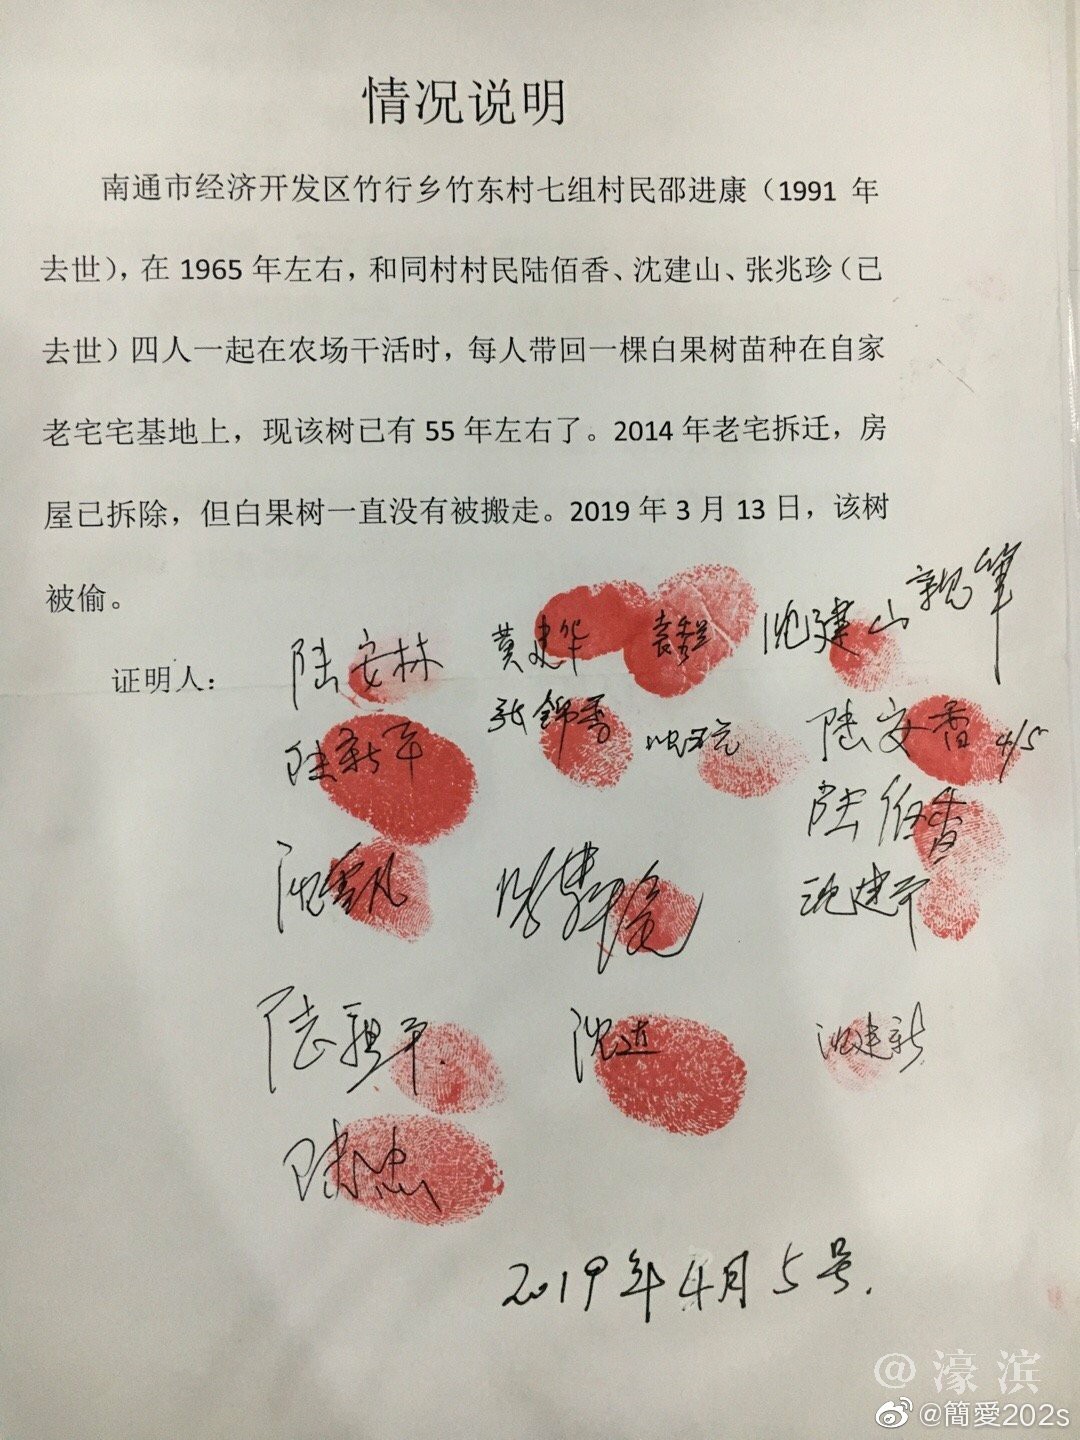 情况说明
南通市经济开发区竹行乡竹东村七组村民邵进康（1991 年
去世），在 1965 年左右，和同村村民陆佰香、沈建山、张兆珍（已
去世）四人一起在农场干活时，每人带回一棵白果树苗种在自家
老宅宅基地上，现该树已有 55 年左右了。2014 年老宅拆迁，房
屋已拆除，但白果树一直没有被搬走。2019 年 3 月 13 日，该树
被偷。
证明人：
陆安林 黄建华 袁秀兰 沈建山 親笔
陆新平 张锦香 陆安香 4/5
陆佰香
沈建平
沈进 沈建新
陆忠
2019年4月5号.
@濠滨
@簡愛202s